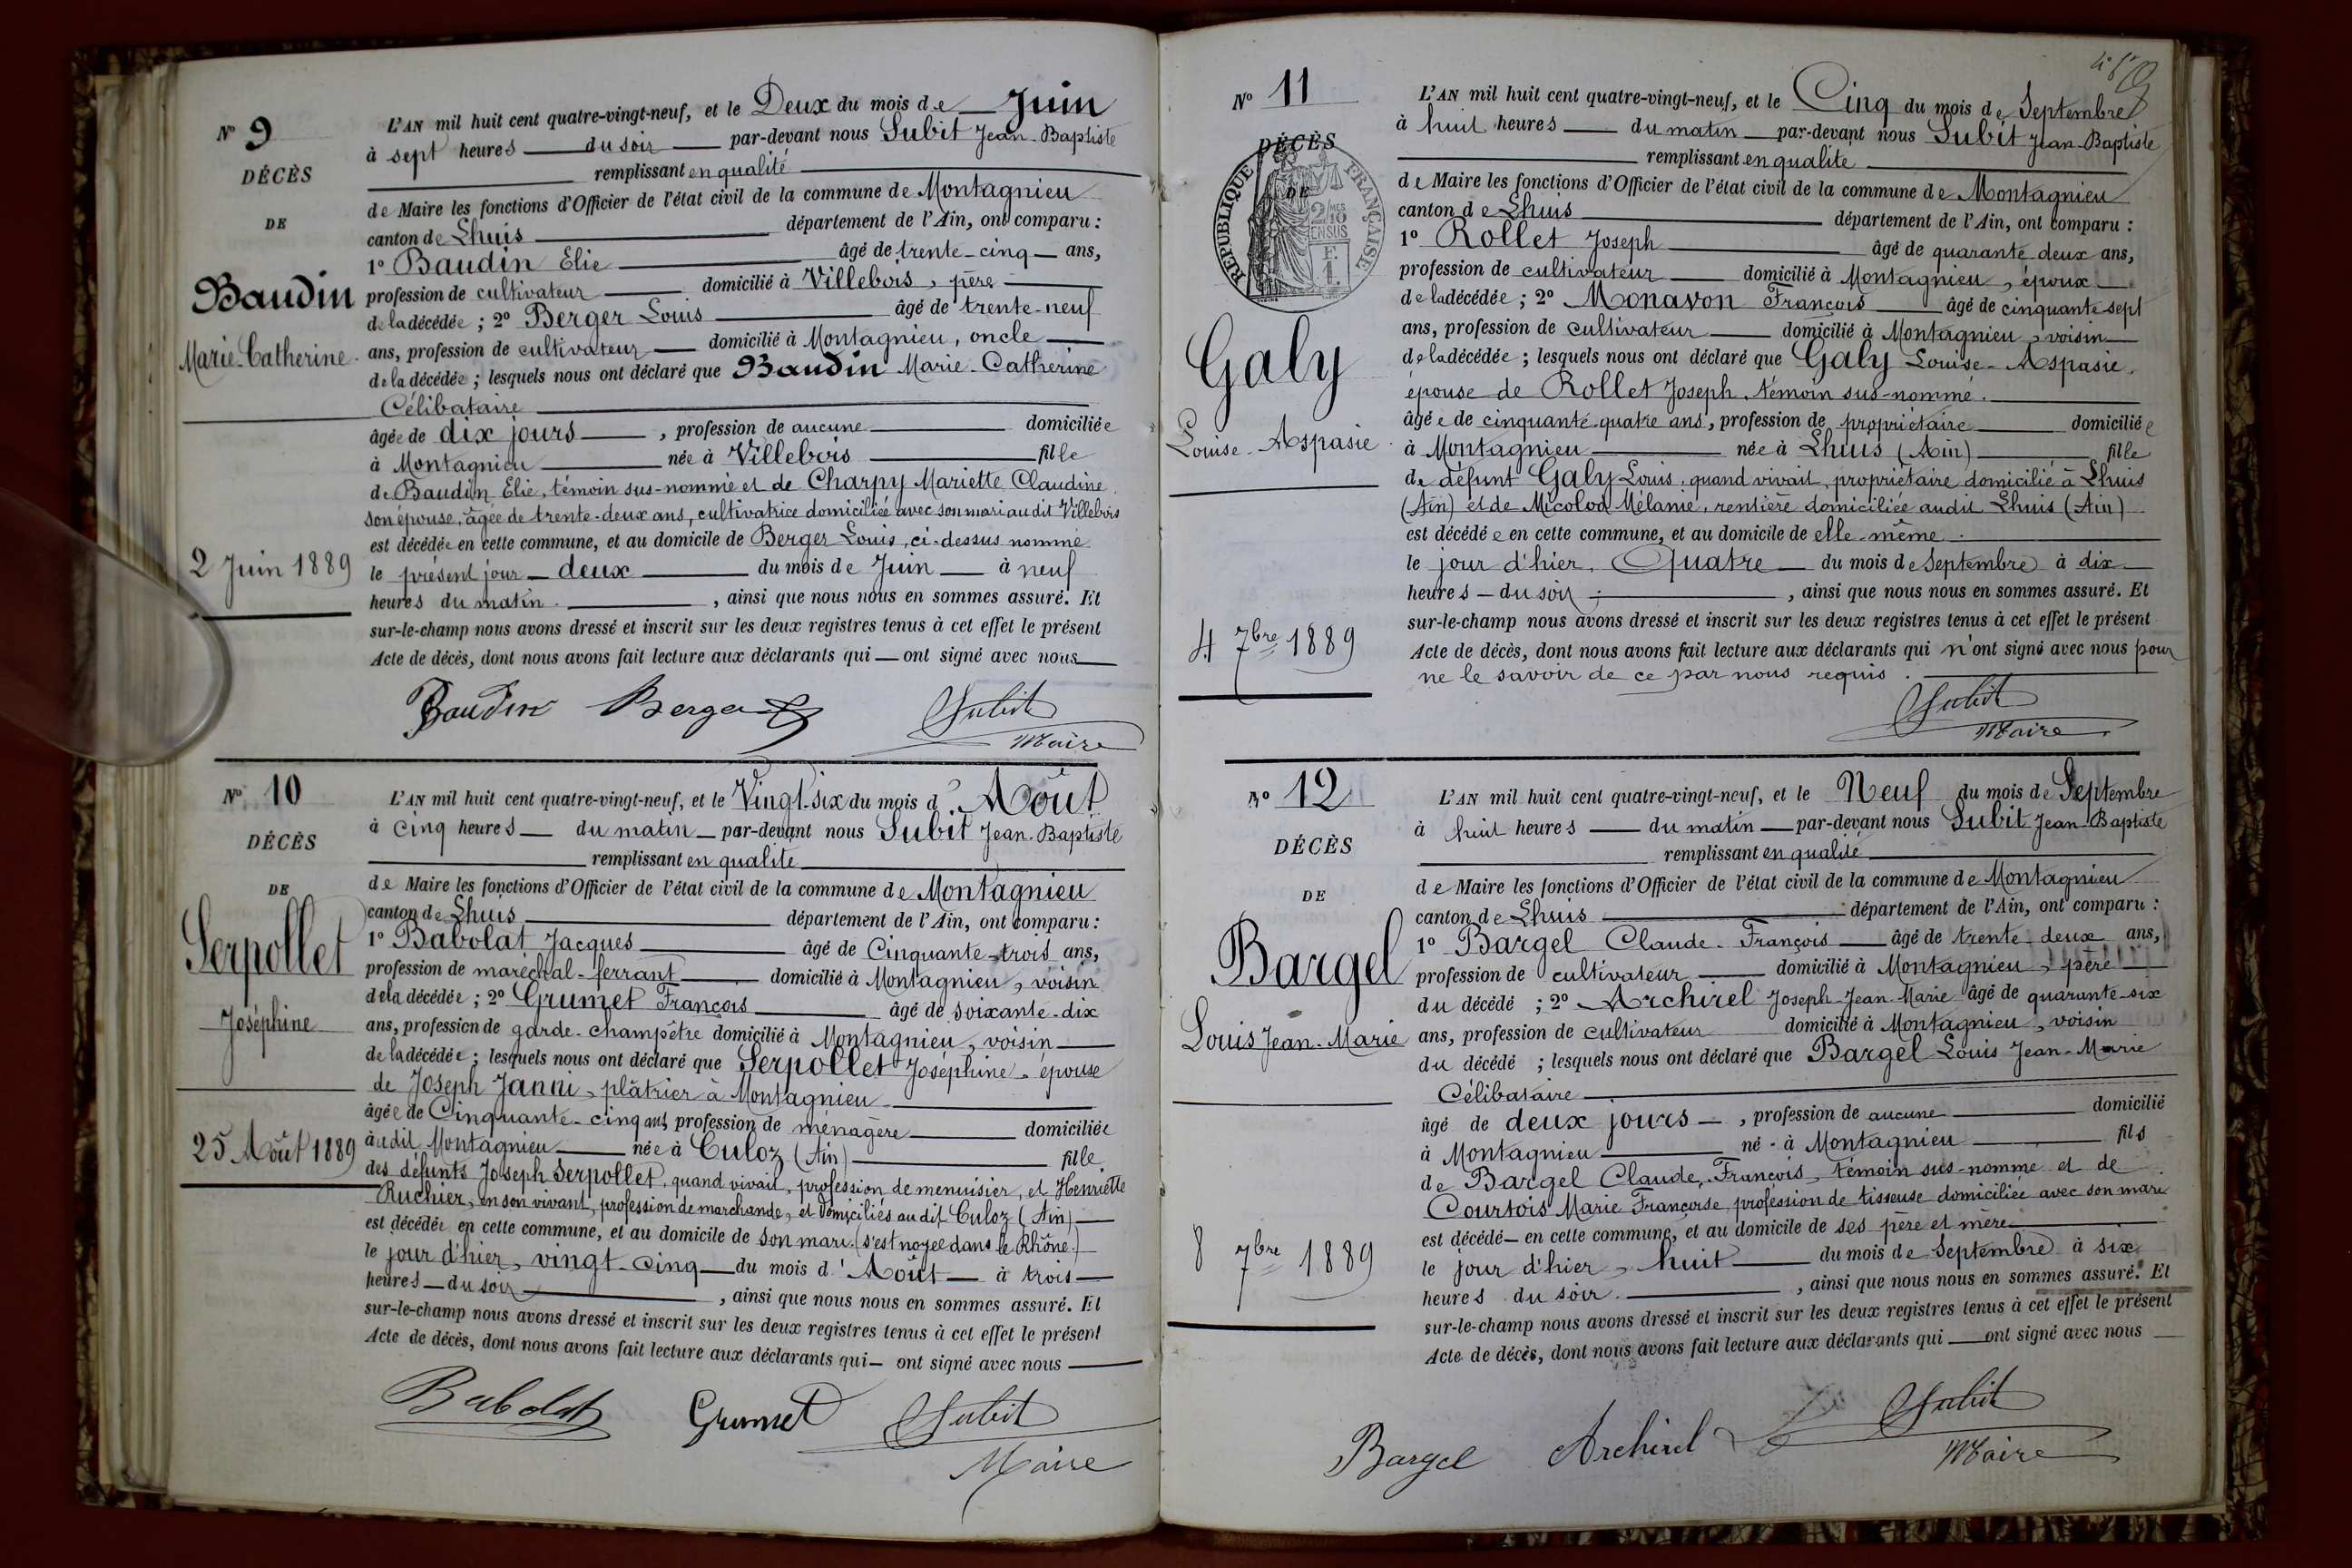 N° 9
DÉCÈS
DE
Baudin
Marie-Catherine.
2 Juin 1889
L'AN mil huit cent quatre-vingt-neuf, et le Deux du mois de Juin
à sept heures du soir par-devant nous Subit Jean-Baptiste
remplissant en qualité
de Maire les fonctions d'Officier de l'état civil de la commune de Montagnieu
canton de Lhuis département de l'Ain, ont comparu :
1° Baudin Elie âgé de trente-cinq ans,
profession de cultivateur domicilié à Villebois, père
de la décédée ; 2° Berger Louis âgé de trente-neuf
ans, profession de cultivateur domicilié à Montagnieu, oncle
de la décédée ; lesquels nous ont déclaré que Baudin Marie-Catherine
Célibataire
âgée de dix jours, profession de aucune domiciliée
à Montagnieu née à Villebois fille
de Baudin Elie, témoin sus-nommé et de Charpy Mariette Claudine
son épouse, âgée de trente-deux ans, cultivatrice domiciliée avec son mari au dit Villebois
est décédée en cette commune, et au domicile de Berger Louis, ci-dessus nommé
le présent jour deux du mois de Juin à neuf
heures du matin, ainsi que nous nous en sommes assuré. Et
sur-le-champ nous avons dressé et inscrit sur les deux registres tenus à cet effet le présent
Acte de décès, dont nous avons fait lecture aux déclarants qui ont signé avec nous
Baudin Berger Subit
Maire
N° 10
DÉCÈS
DE
Serpollet
Joséphine
25 Août 1889
L'AN mil huit cent quatre-vingt-neuf, et le Vingt-six du mois d'Août
à cinq heures du matin par-devant nous Subit Jean-Baptiste
remplissant en qualité
de Maire les fonctions d'Officier de l'état civil de la commune de Montagnieu
canton de Lhuis département de l'Ain, ont comparu :
1° Babolat Jacques âgé de Cinquante-trois ans,
profession de maréchal-ferrant domicilié à Montagnieu, voisin
de la décédée ; 2° Grumet François âgé de soixante-dix
ans, profession de garde-champêtre domicilié à Montagnieu, voisin
de la décédée ; lesquels nous ont déclaré que Serpollet Joséphine, épouse
de Joseph Janni, plâtrier à Montagnieu
âgée de Cinquante-cinq ans, profession de ménagère domiciliée
audit Montagnieu née à Culoz (Ain) fille
des défunts Joseph Serpollet, quand vivait, profession de menuisier, et Henriette
Ruchier, en son vivant, profession de marchande, et domiciliés au dit Culoz (Ain)
est décédée en cette commune, et au domicile de son mari. (s'est noyée dans le Rhône.)
le jour d'hier, vingt-cinq du mois d'Août à trois
heures du soir, ainsi que nous nous en sommes assuré. Et
sur-le-champ nous avons dressé et inscrit sur les deux registres tenus à cet effet le présent
Acte de décès, dont nous avons fait lecture aux déclarants qui ont signé avec nous
Babolat Grumet Subit
Maire
N° 11
DÉCÈS
DE
RÉPUBLIQUE FRANÇAISE
Galy
Louise-Aspasie.
4 7bre 1889
L'AN mil huit cent quatre-vingt-neuf, et le Cinq du mois de Septembre
à huit heures du matin par-devant nous Subit Jean-Baptiste
remplissant en qualité
de Maire les fonctions d'Officier de l'état civil de la commune de Montagnieu
canton de Lhuis département de l'Ain, ont comparu :
1° Rollet Joseph âgé de quarante deux ans,
profession de cultivateur domicilié à Montagnieu, époux
de la décédée ; 2° Monavon François âgé de cinquante-sept
ans, profession de cultivateur domicilié à Montagnieu, voisin
de la décédée ; lesquels nous ont déclaré que Galy Louise-Aspasie,
épouse de Rollet Joseph, témoin sus-nommé.
âgée de cinquante-quatre ans, profession de propriétaire domiciliée
à Montagnieu née à Lhuis (Ain) fille
de défunt Galy Louis, quand vivait, propriétaire domicilié à Lhuis
(Ain) et de Micoloa Mélanie, rentière domiciliée audit Lhuis (Ain)
est décédée en cette commune, et au domicile de elle-même.
le jour d'hier, Quatre du mois de Septembre à dix
heures du soir, ainsi que nous nous en sommes assuré. Et
sur-le-champ nous avons dressé et inscrit sur les deux registres tenus à cet effet le présent
Acte de décès, dont nous avons fait lecture aux déclarants qui n'ont signé avec nous pour
ne le savoir de ce par nous requis.
Subit
Maire
N° 12
DÉCÈS
DE
Bargel
Louis Jean-Marie
8 7bre 1889
L'AN mil huit cent quatre-vingt-neuf, et le Neuf du mois de Septembre
à huit heures du matin par-devant nous Subit Jean-Baptiste
remplissant en qualité
de Maire les fonctions d'Officier de l'état civil de la commune de Montagnieu
canton de Lhuis département de l'Ain, ont comparu :
1° Bargel Claude-François âgé de trente-deux ans,
profession de cultivateur domicilié à Montagnieu, père
du décédé ; 2° Archirel Joseph-Jean-Marie âgé de quarante-six
ans, profession de cultivateur domicilié à Montagnieu, voisin
du décédé ; lesquels nous ont déclaré que Bargel Louis Jean-Marie
Célibataire
âgé de deux jours, profession de aucune domicilié
à Montagnieu né à Montagnieu fils
de Bargel Claude, François, témoin sus-nommé et de
Courtois Marie Françoise, profession de tisseuse domiciliée avec son mari
est décédé en cette commune, et au domicile de ses père et mère
le jour d'hier, huit du mois de Septembre à six
heures du soir, ainsi que nous nous en sommes assuré. Et
sur-le-champ nous avons dressé et inscrit sur les deux registres tenus à cet effet le présent
Acte de décès, dont nous avons fait lecture aux déclarants qui ont signé avec nous
Bargel Archirel Subit
Maire